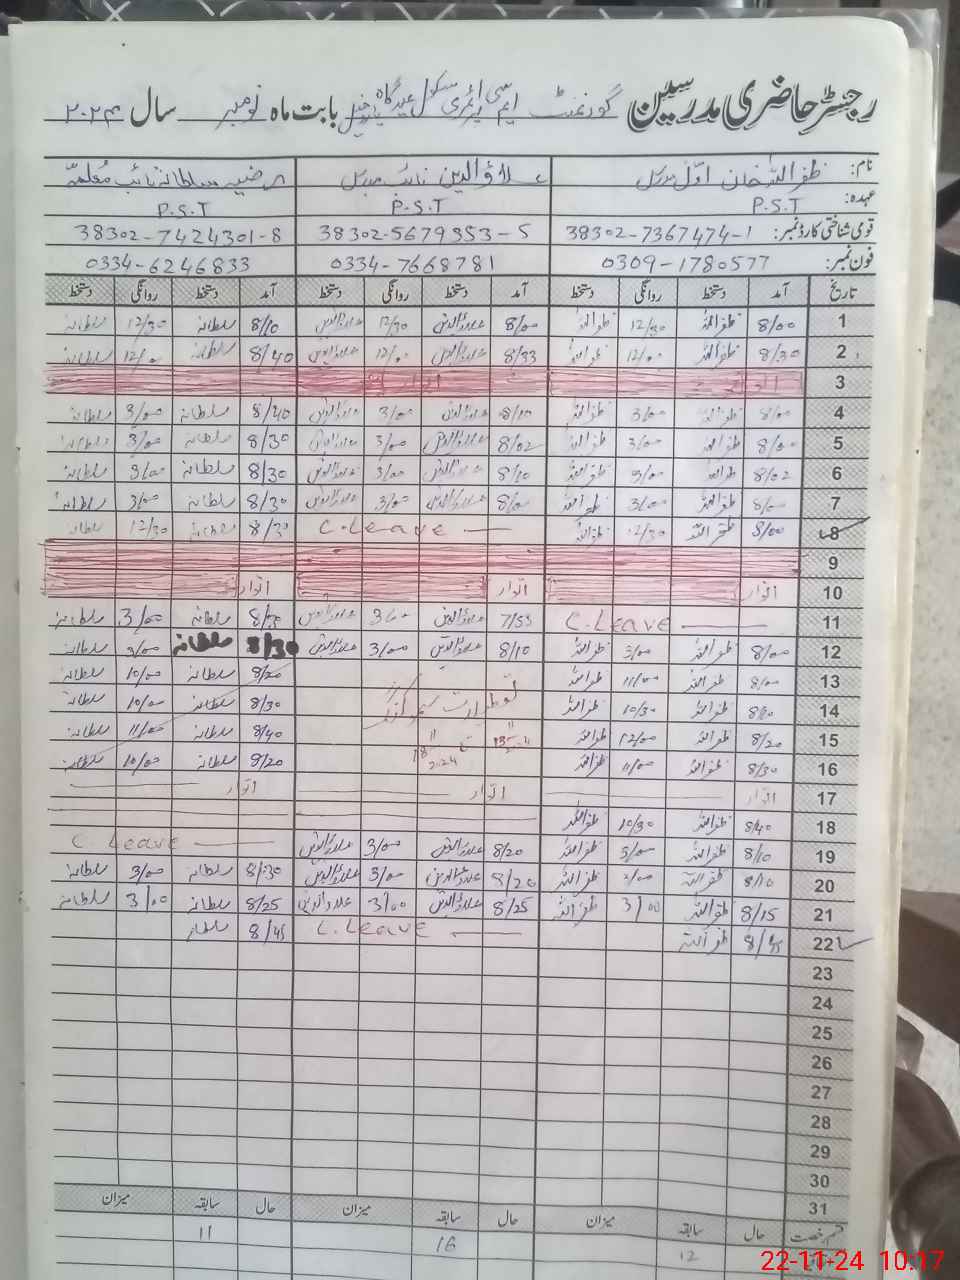 رجسٹر حاضری مدرسین گورنمنٹ ایم سی پرائمری سکول عید گاہ بابت ماہ نومبر سال ۲۰۲۴
نام: ظفر اللہ خان اوّل مدرس علاؤالدین نائب مدرس رضیہ سلطانہ نائب معلمہ
عہدہ: P.S.T P.S.T P.S.T
قومی شناختی کارڈ نمبر: 38302-7367474-1 38302-5679353-5 38302-7424301-8
فون نمبر: 0309-1780577 0334-7668781 0334-6246833
تاریخ آمد دستخط روانگی دستخط آمد دستخط روانگی دستخط آمد دستخط روانگی دستخط
1 8/00 ظفراللہ 12/30 ظفراللہ 8/00 علاؤالدین 12/30 علاؤالدین 8/10 سلطانہ 12/30 سلطانہ
2 8/30 ظفراللہ 12/00 ظفراللہ 8/33 علاؤالدین 12/00 علاؤالدین 8/40 سلطانہ 12/00 سلطانہ
3 اتوار اتوار
4 8/00 ظفراللہ 3/00 ظفراللہ 8/10 علاؤالدین 3/00 علاؤالدین 8/40 سلطانہ 3/00 سلطانہ
5 8/00 ظفراللہ 3/00 ظفراللہ 8/02 علاؤالدین 3/00 علاؤالدین 8/30 سلطانہ 3/00 سلطانہ
6 8/02 ظفراللہ 3/00 ظفراللہ 8/10 علاؤالدین 3/00 علاؤالدین 8/30 سلطانہ 3/00 سلطانہ
7 8/00 ظفراللہ 3/00 ظفراللہ 8/00 علاؤالدین 3/00 علاؤالدین 8/30 سلطانہ 3/00 سلطانہ
8 8/00 ظفراللہ 12/30 ظفراللہ C.Leave 8/30 سلطانہ 12/30 سلطانہ
9
10 اتوار اتوار اتوار
11 C.Leave 7/55 علاؤالدین 3/00 علاؤالدین 8/30 سلطانہ 3/00 سلطانہ
12 8/00 ظفراللہ 3/00 ظفراللہ 8/10 علاؤالدین 3/00 علاؤالدین 8/30 سلطانہ 3/00 سلطانہ
13 8/00 ظفراللہ 11/00 ظفراللہ 8/20 سلطانہ 10/00 سلطانہ
14 8/10 ظفراللہ 10/30 ظفراللہ 8/30 سلطانہ 10/00 سلطانہ
15 8/20 ظفراللہ 12/00 ظفراللہ 8/40 سلطانہ 11/00 سلطانہ
16 8/30 ظفراللہ 11/00 ظفراللہ 8/20 سلطانہ 10/00 سلطانہ
17 اتوار اتوار اتوار
18 8/40 ظفراللہ 10/30 ظفراللہ
19 8/10 ظفراللہ 3/00 ظفراللہ 8/20 علاؤالدین 3/00 علاؤالدین C.Leave
20 8/10 ظفراللہ 3/00 ظفراللہ 8/20 علاؤالدین 3/00 علاؤالدین 8/30 سلطانہ 3/00 سلطانہ
21 8/15 ظفراللہ 3/00 ظفراللہ 8/25 علاؤالدین 3/00 علاؤالدین 8/25 سلطانہ 3/00 سلطانہ
22 ظفراللہ C.Leave 8/45 سلطانہ
23
24
25
26
27
28
29
30
31
قسم رخصت حال سابقہ میزان حال سابقہ میزان حال سابقہ میزان
12 16 11
22-11-24 10:17